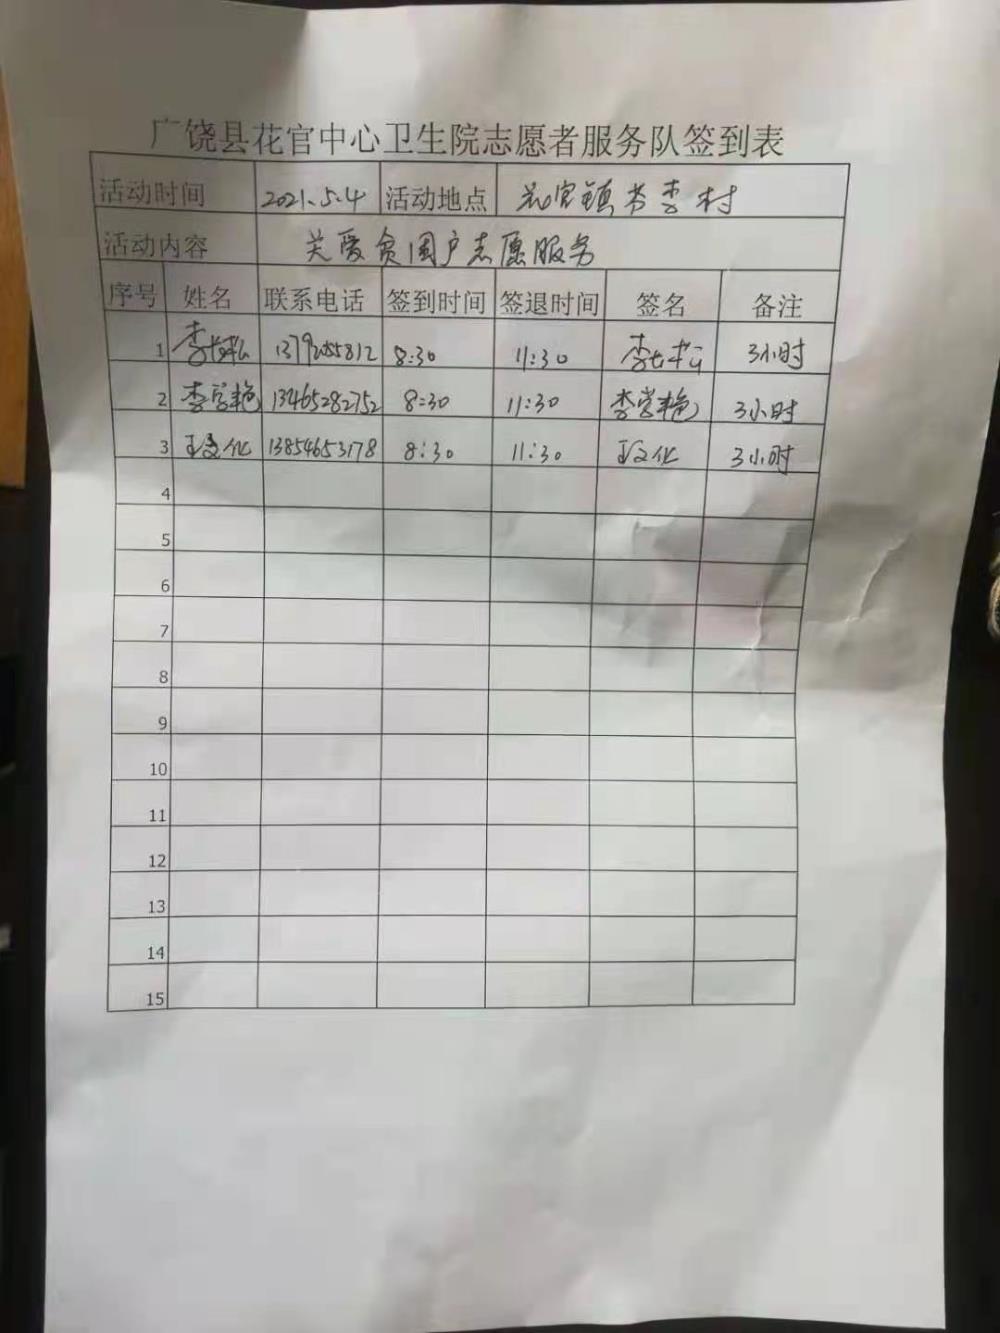 广饶县花官中心卫生院志愿者服务队签到表
活动时间 2021.5.4 活动地点 花官镇 李村
活动内容 关爱贫困户志愿服务
序号 姓名 联系电话 签到时间 签退时间 签名 备注
1 李 8:30 11:30 李 3小时
2 李学艳 13465282752 8:30 11:30 李学艳 3小时
3 王文化 13854653178 8:30 11:30 王文化 3小时
4
5
6
7
8
9
10
11
12
13
14
15